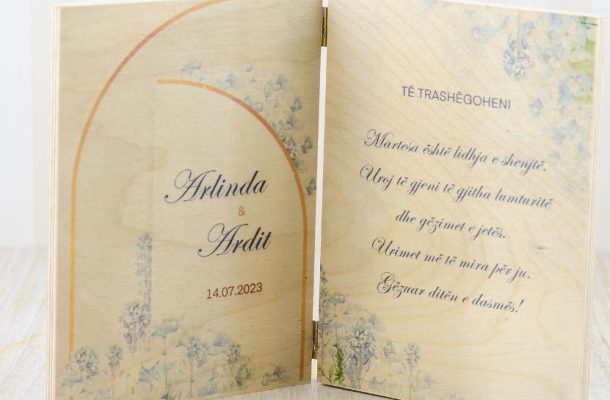 Arlinda
&
Ardit
14.07.2023
TË TRASHËGOHENI
Martesa është lidhja e shenjtë.
Uroj të gjeni të gjitha lumturitë
dhe gëzimet e jetës.
Urimet më të mira për ju.
Gëzuar ditën e dasmës!